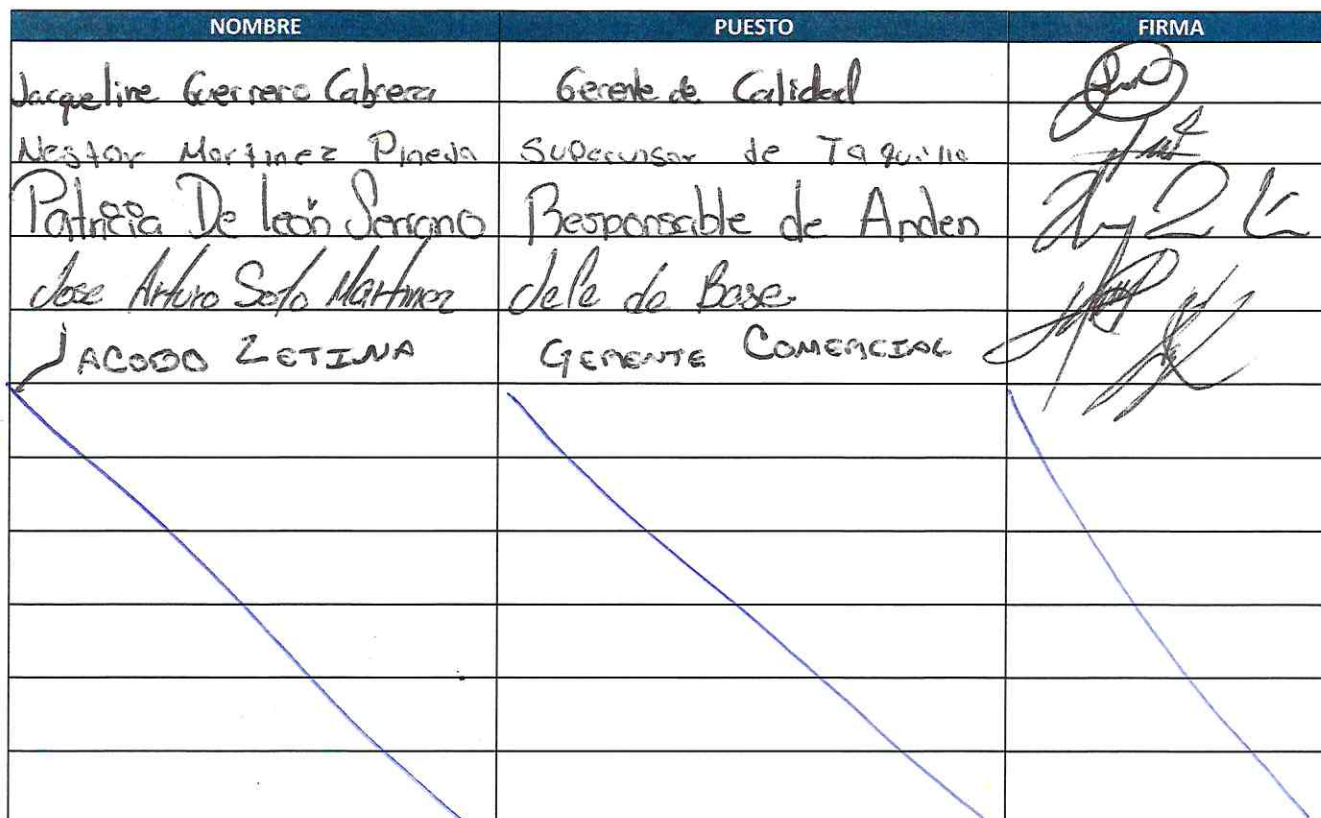 NOMBRE PUESTO FIRMA
Jacqueline Guerrero Cabrera Gerente de Calidad
Nestor Martinez Pineda Supervisor de Taquilla
Patricia De león Serrano Responsable de Anden
Jose Arturo Soto Martinez Jefe de Base
JACOBO ZETINA GERENTE COMERCIAL